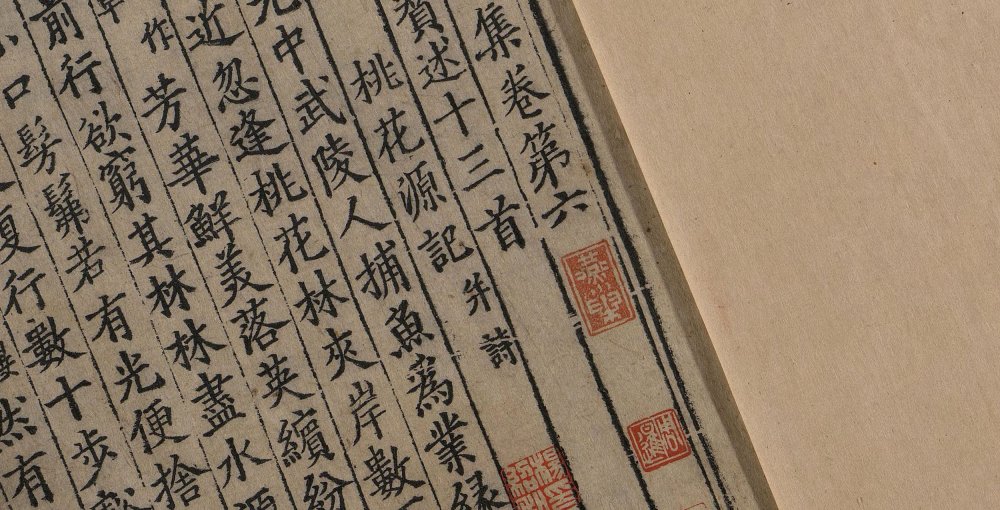 集卷第六
述十三首
桃花源記并詩
中武陵人捕魚爲業緣
近忽逢桃花林夾岸數
作芳華鮮美落英繽紛
前行欲窮其林林盡水源
口髣髴若有光便捨
復行數十步
然有